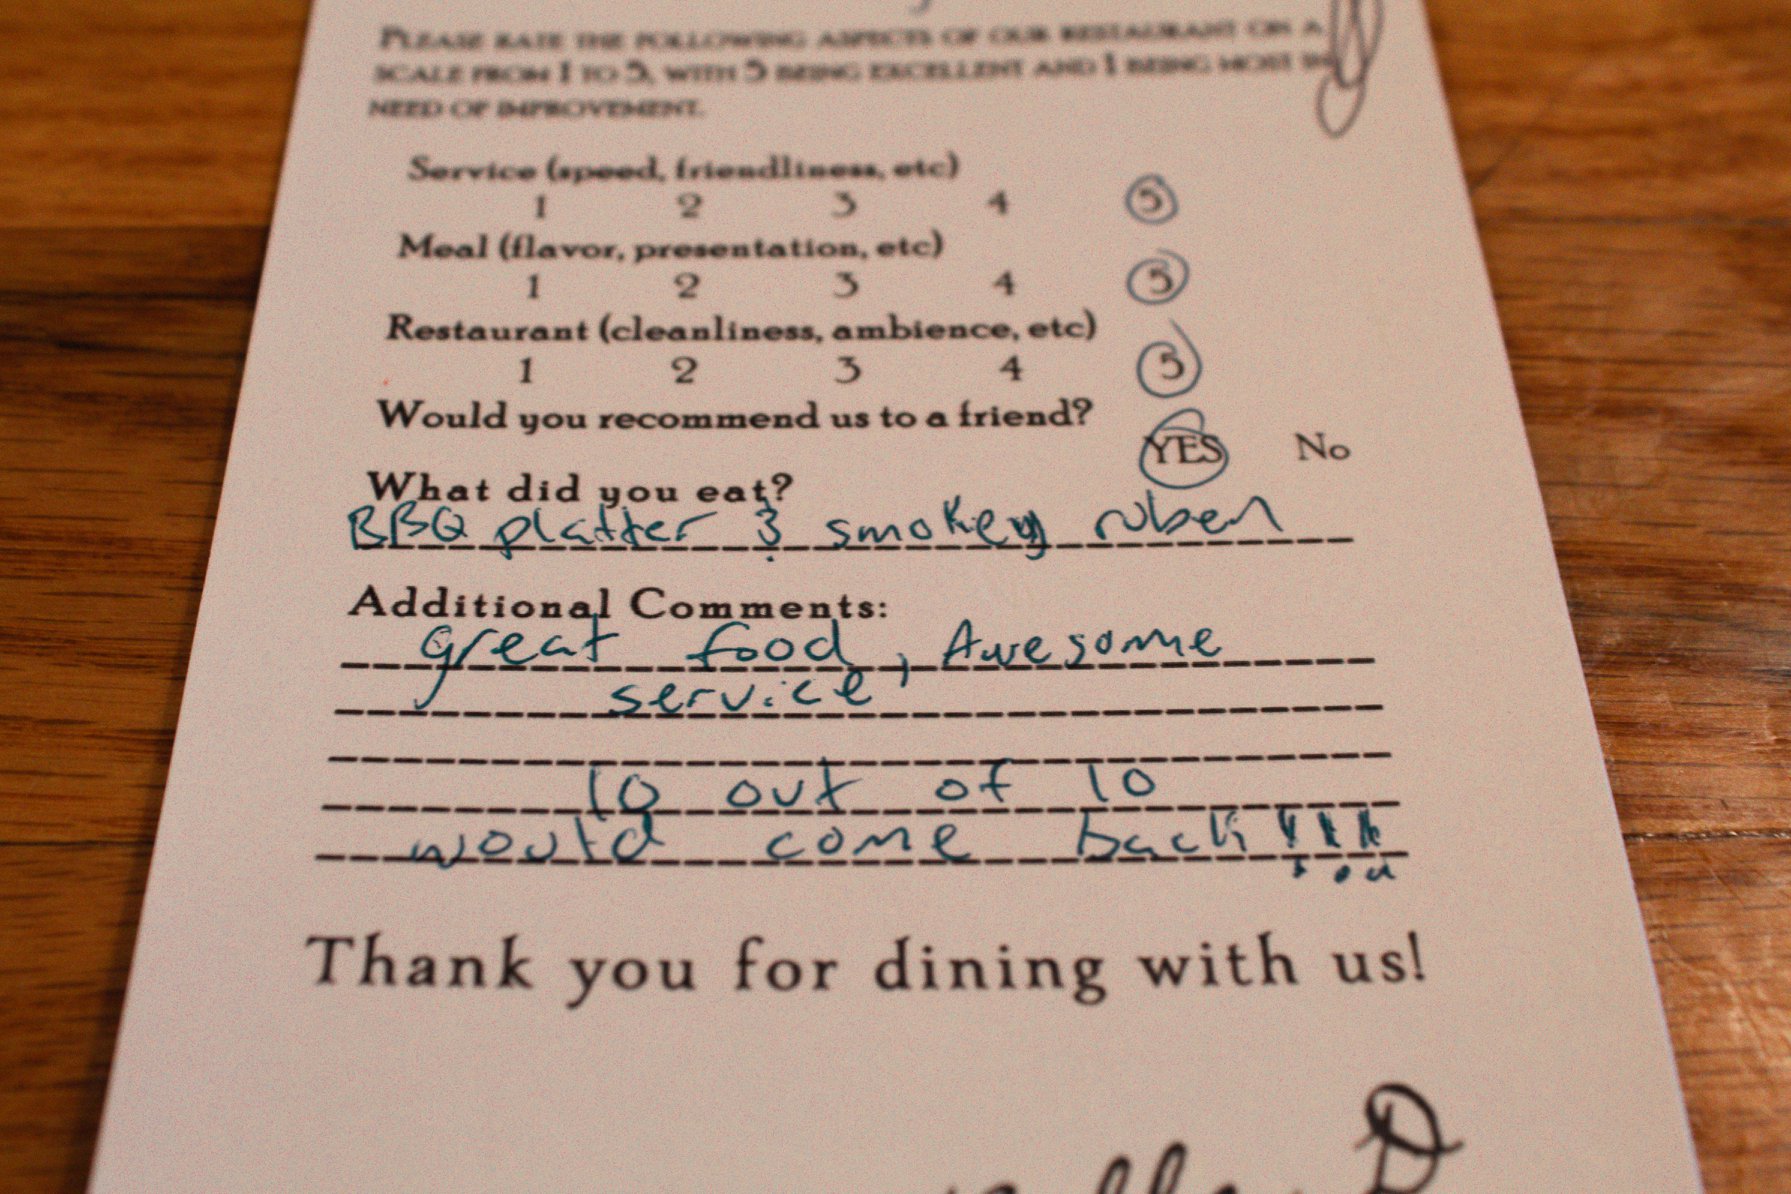 PLEASE RATE THE FOLLOWING ASPECTS OF OUR RESTAURANT ON A
SCALE FROM 1 TO 5, WITH 5 BEING EXCELLENT AND 1 BEING MOST IN
NEED OF IMPROVEMENT.
Service (speed, friendliness, etc)
1 2 3 4 5
Meal (flavor, presentation, etc)
1 2 3 4 5
Restaurant (cleanliness, ambience, etc)
1 2 3 4 5
Would you recommend us to a friend?
YES No
What did you eat?
BBQ platter & smokey ruben
Additional Comments:
great food, Awesome
service
10 out of 10
would come back!!!
Thank you for dining with us!